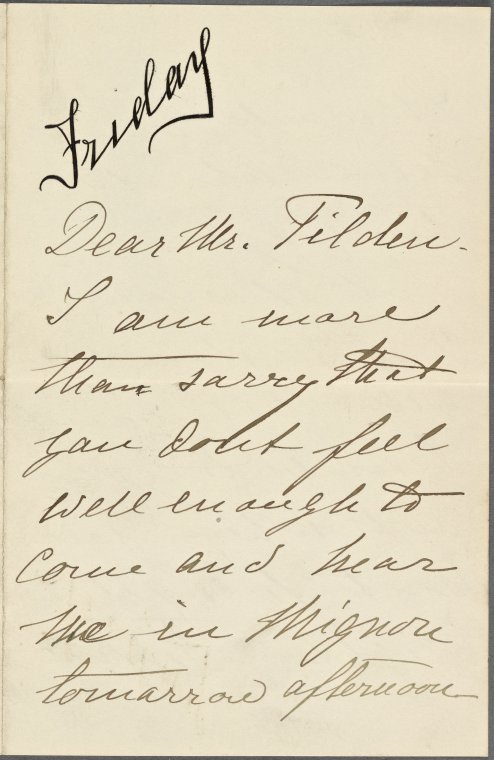 Friday
Dear Mr. Tilden-
I am more
than sorry that
you dont feel
well enough to
come and hear
me in Mignon
tomorrow afternoon-